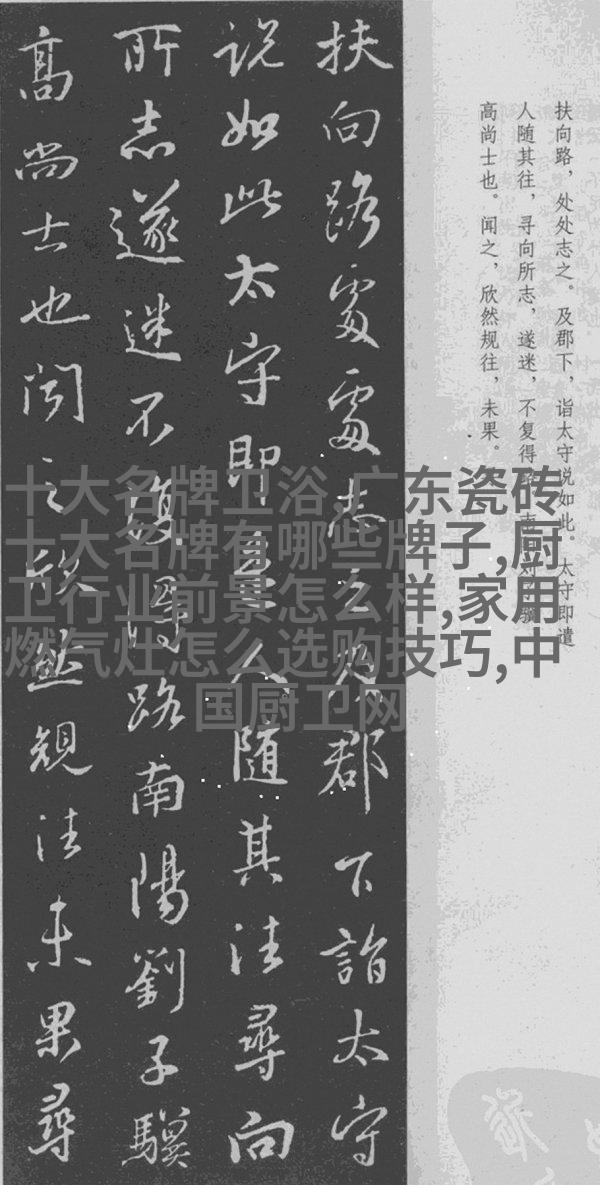 扶向路處處志之及郡下詣太守
说如此太守即遣人随其往尋向
所志遂迷不復得路南陽劉子驥
高尚士也闻之欣然規往未果尋
扶向路，处处志之。及郡下，诣太守说如此。太守即遣
人随其往，寻向所志，遂迷，不复得路。南阳刘子骥，
高尚士也。闻之，欣然规往，未果。
十大名牌卫浴,广东瓷砖
十大名牌有哪些牌子,厨
卫行业前景怎么样,家用
燃气灶怎么选购技巧,中
国厨卫网